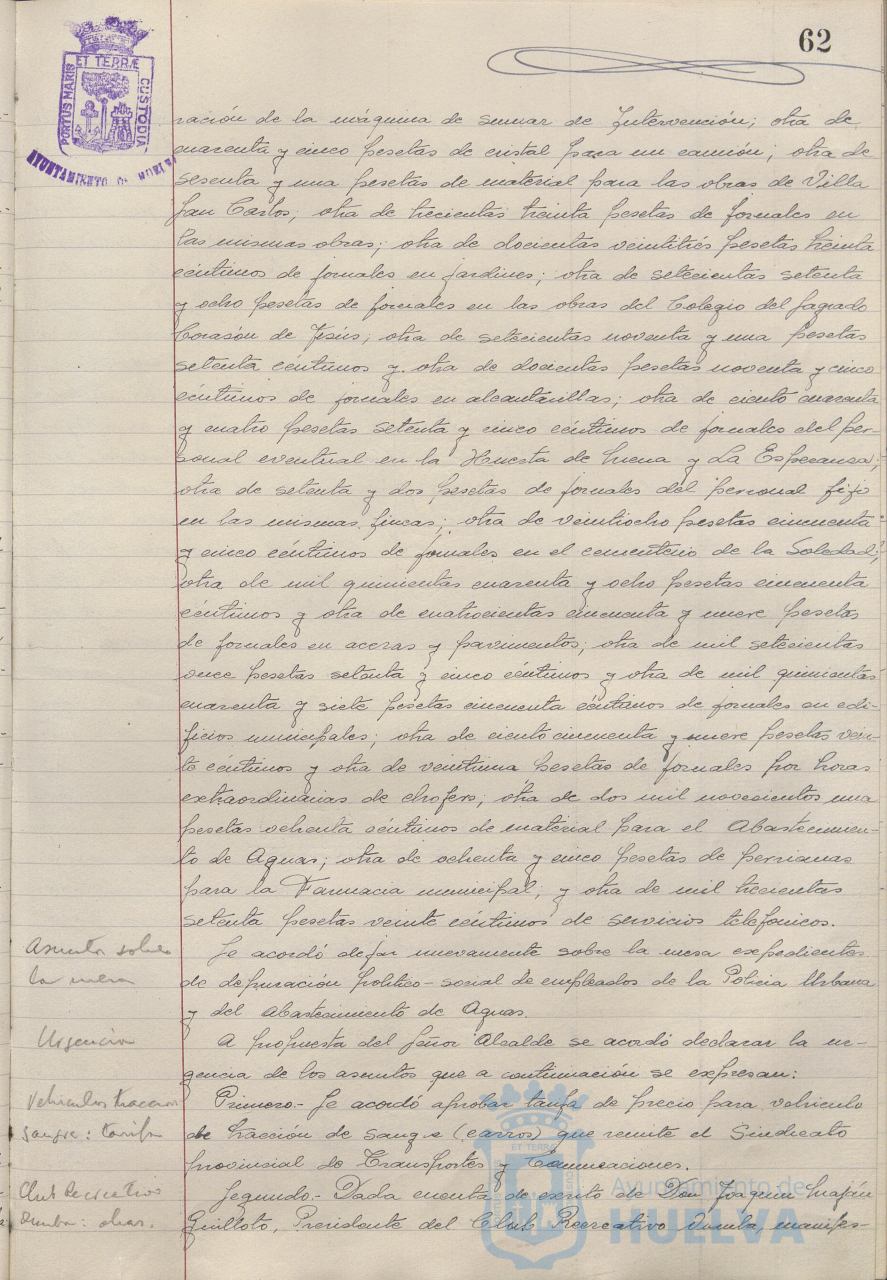 62
PORTUS MARIS ET TERRÆ CUSTODIA
AYUNTAMIENTO DE HUELVA
ración de la máquina de sumar de Intervención; otra de
cuarenta y cinco pesetas de cristal para un camión; otra de
sesenta y una pesetas de material para las obras de Villa
San Carlos; otra de trecientas treinta pesetas de jornales en
las mismas obras; otra de docientas veintitrés pesetas treinta
céntimos de jornales en jardines; otra de setecientas setenta
y ocho pesetas de jornales en las obras del Colegio del Sagrado
Corazón de Jesús; otra de setecientas noventa y una pesetas
setenta céntimos y otra de docientas pesetas noventa y cinco
céntimos de jornales en alcantarillas; otra de ciento cuarenta
y cuatro pesetas setenta y cinco céntimos de jornales del per-
sonal eventual en la Huerta de Mena y La Esperanza;
otra de setenta y dos pesetas de jornales del personal fijo
en las mismas fincas; otra de veintiocho pesetas cincuenta
y cinco céntimos de jornales en el cementerio de la Soledad;
otra de mil quinientas cuarenta y ocho pesetas cincuenta
céntimos y otra de cuatrocientas cincuenta y nueve pesetas
de jornales en aceras y pavimentos; otra de mil setecientas
once pesetas setenta y cinco céntimos y otra de mil quinientas
cuarenta y siete pesetas cincuenta céntimos de jornales en edi-
ficios municipales; otra de ciento cincuenta y nueve pesetas vein-
te céntimos y otra de veintiuna pesetas de jornales por horas
extraordinarias de chofers; otra de dos mil novecientos una
pesetas ochenta céntimos de material para el Abastecimien-
to de Aguas; otra de ochenta y cinco pesetas de persianas
para la Farmacia municipal; y otra de mil trecientas
setenta pesetas veinte céntimos de servicios telefónicos.
Asuntos sobre
la mesa
Se acordó dejar nuevamente sobre la mesa expedientes
de depuración político-social de empleados de la Policía Urbana
y del Abastecimiento de Aguas.
Urgencia
A propuesta del Señor Alcalde se acordó declarar la ur-
gencia de los asuntos que a continuación se expresan:
Vehículos tracción
sangre: tarifa
Primero.- Se acordó aprobar tarifa de precio para vehículo
de tracción de sangre (carros) que remite el Sindicato
Provincial de Transportes y Comunicaciones.
Club Recreativo
Onuba: obras.
Segundo.- Dada cuenta de escrito de Don Joaquín
Guilloto, Presidente del Club Recreativo Onuba, manifes-
Ayuntamiento de
HUELVA